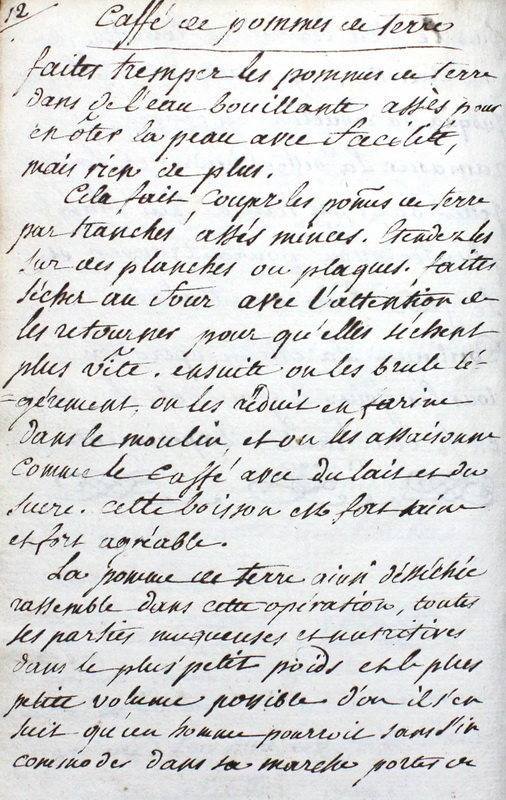 12
Caffé de pommes de terre
faites tremper les pommes de terre
dans de l'eau bouillante assès pour
en ôter la peau avec facilité,
mais rien de plus.
Cela fait, coupez les pom̃es de terre
par tranches assés minces. Etendez les
sur des planches ou plaques. faites
sécher au four avec l'attention de
les retourner pour qu'elles sechent
plus vîte. ensuite on les brule lé-
=gérement, on les réduit en farine
dans le moulin, et on les assaisonne
comme le caffé avec du lait et du
sucre. cette boisson est fort saine
et fort agréable.
La pomme de terre ainsi désséchée
rassemble dans cette opération, toutes
ses parties muqueuses et nutritives
dans le plus petit poids et le plus
petit volume possible d'ou il s'en
suit qu'un homme pourroit sans s'in
commoder dans sa marche porter de